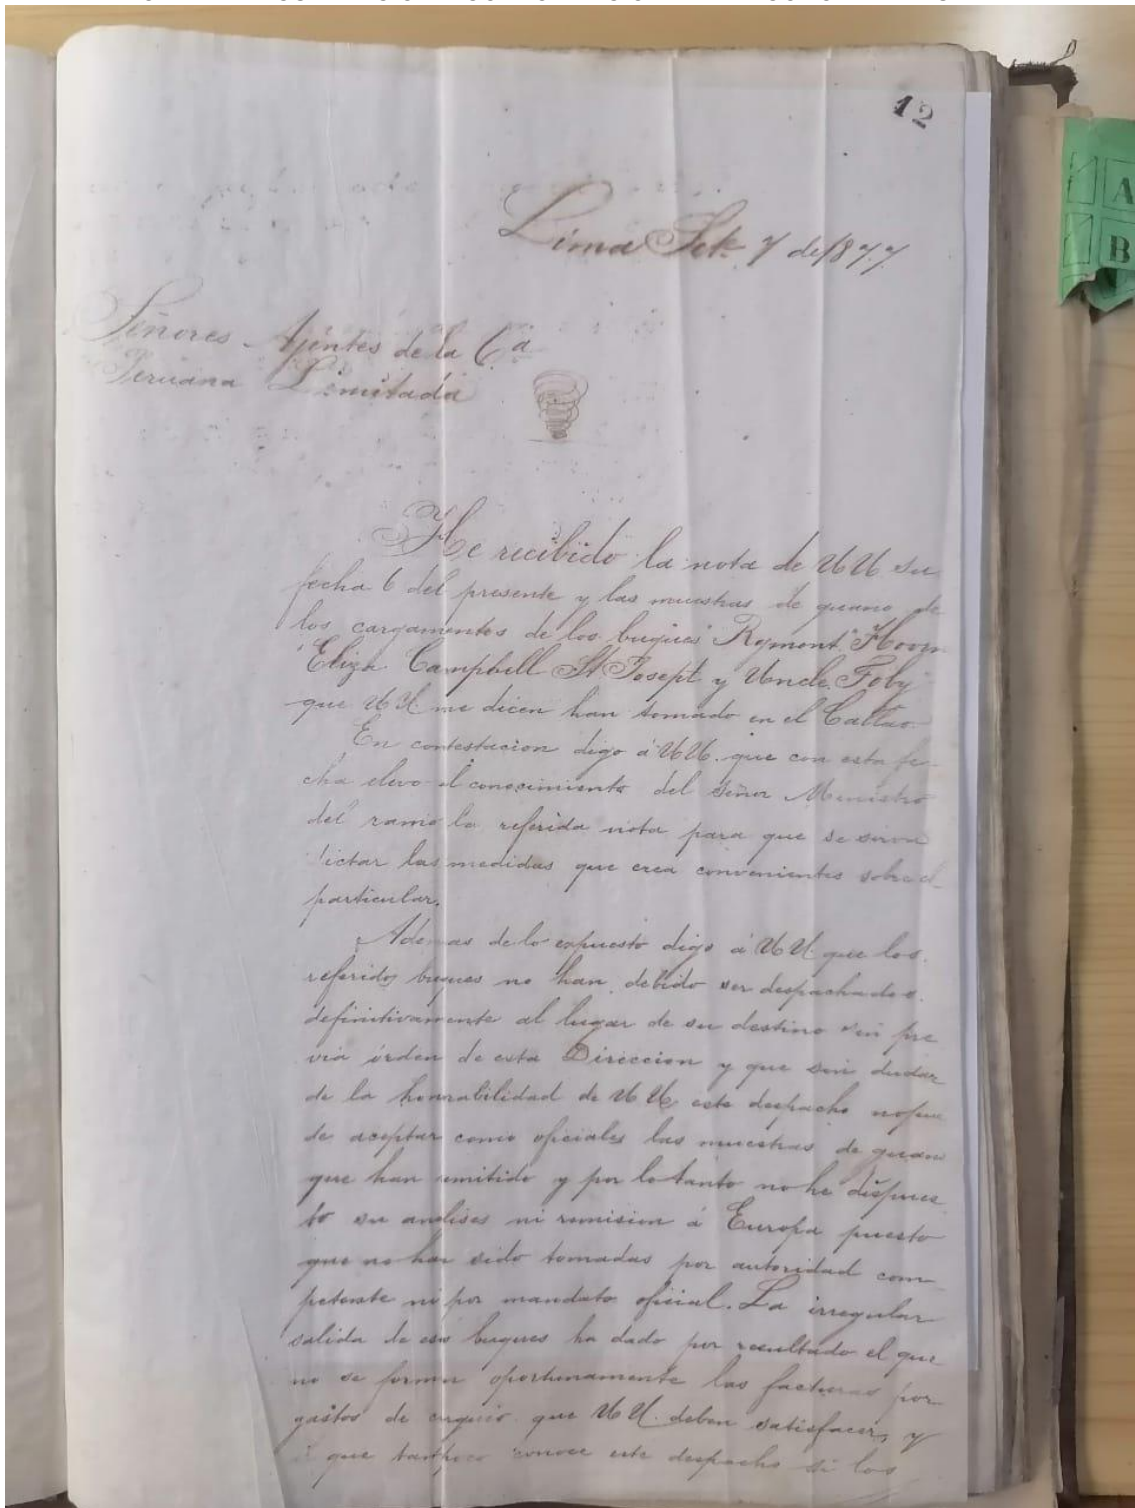 12
Lima Set. 7 de 1877.
Señores Ajentes de la C.a
Peruana Limitada
He recibido la nota de UU su
fecha 6 del presente y las muestras de guano de
los cargamentos de los buques "Rymont"
Eliza Campbell St Josept y Uncle Foby"
que UU. me dicen han tomado en el Callao.
En contestacion digo á UU. que con esta fe-
cha elevo al conocimiento del Señor Ministro
del ramo la referida nota para que se sirva
dictar las medidas que crea convenientes sobre el
particular.
Ademas de lo expuesto digo á UU. que los
referidos buques no han debido ser despachados
definitivamente al lugar de su destino sin pre
via órden de esta Direccion y que sin dudar
de la honrabilidad de UU. este despacho no pue
de aceptar como oficiales las muestras de guano
que han remitido y por lo tanto no he dispues
to su analises ni remision á Europa puesto
que no han sido tomadas por autoridad com-
petente ni por mandato oficial. La irregular
salida de esos buques ha dado por resultado el que
no se formen oportunamente las facturas por
gastos de que UU. deben satisfacer, y
que tampoco conoce este despacho si los
A
B